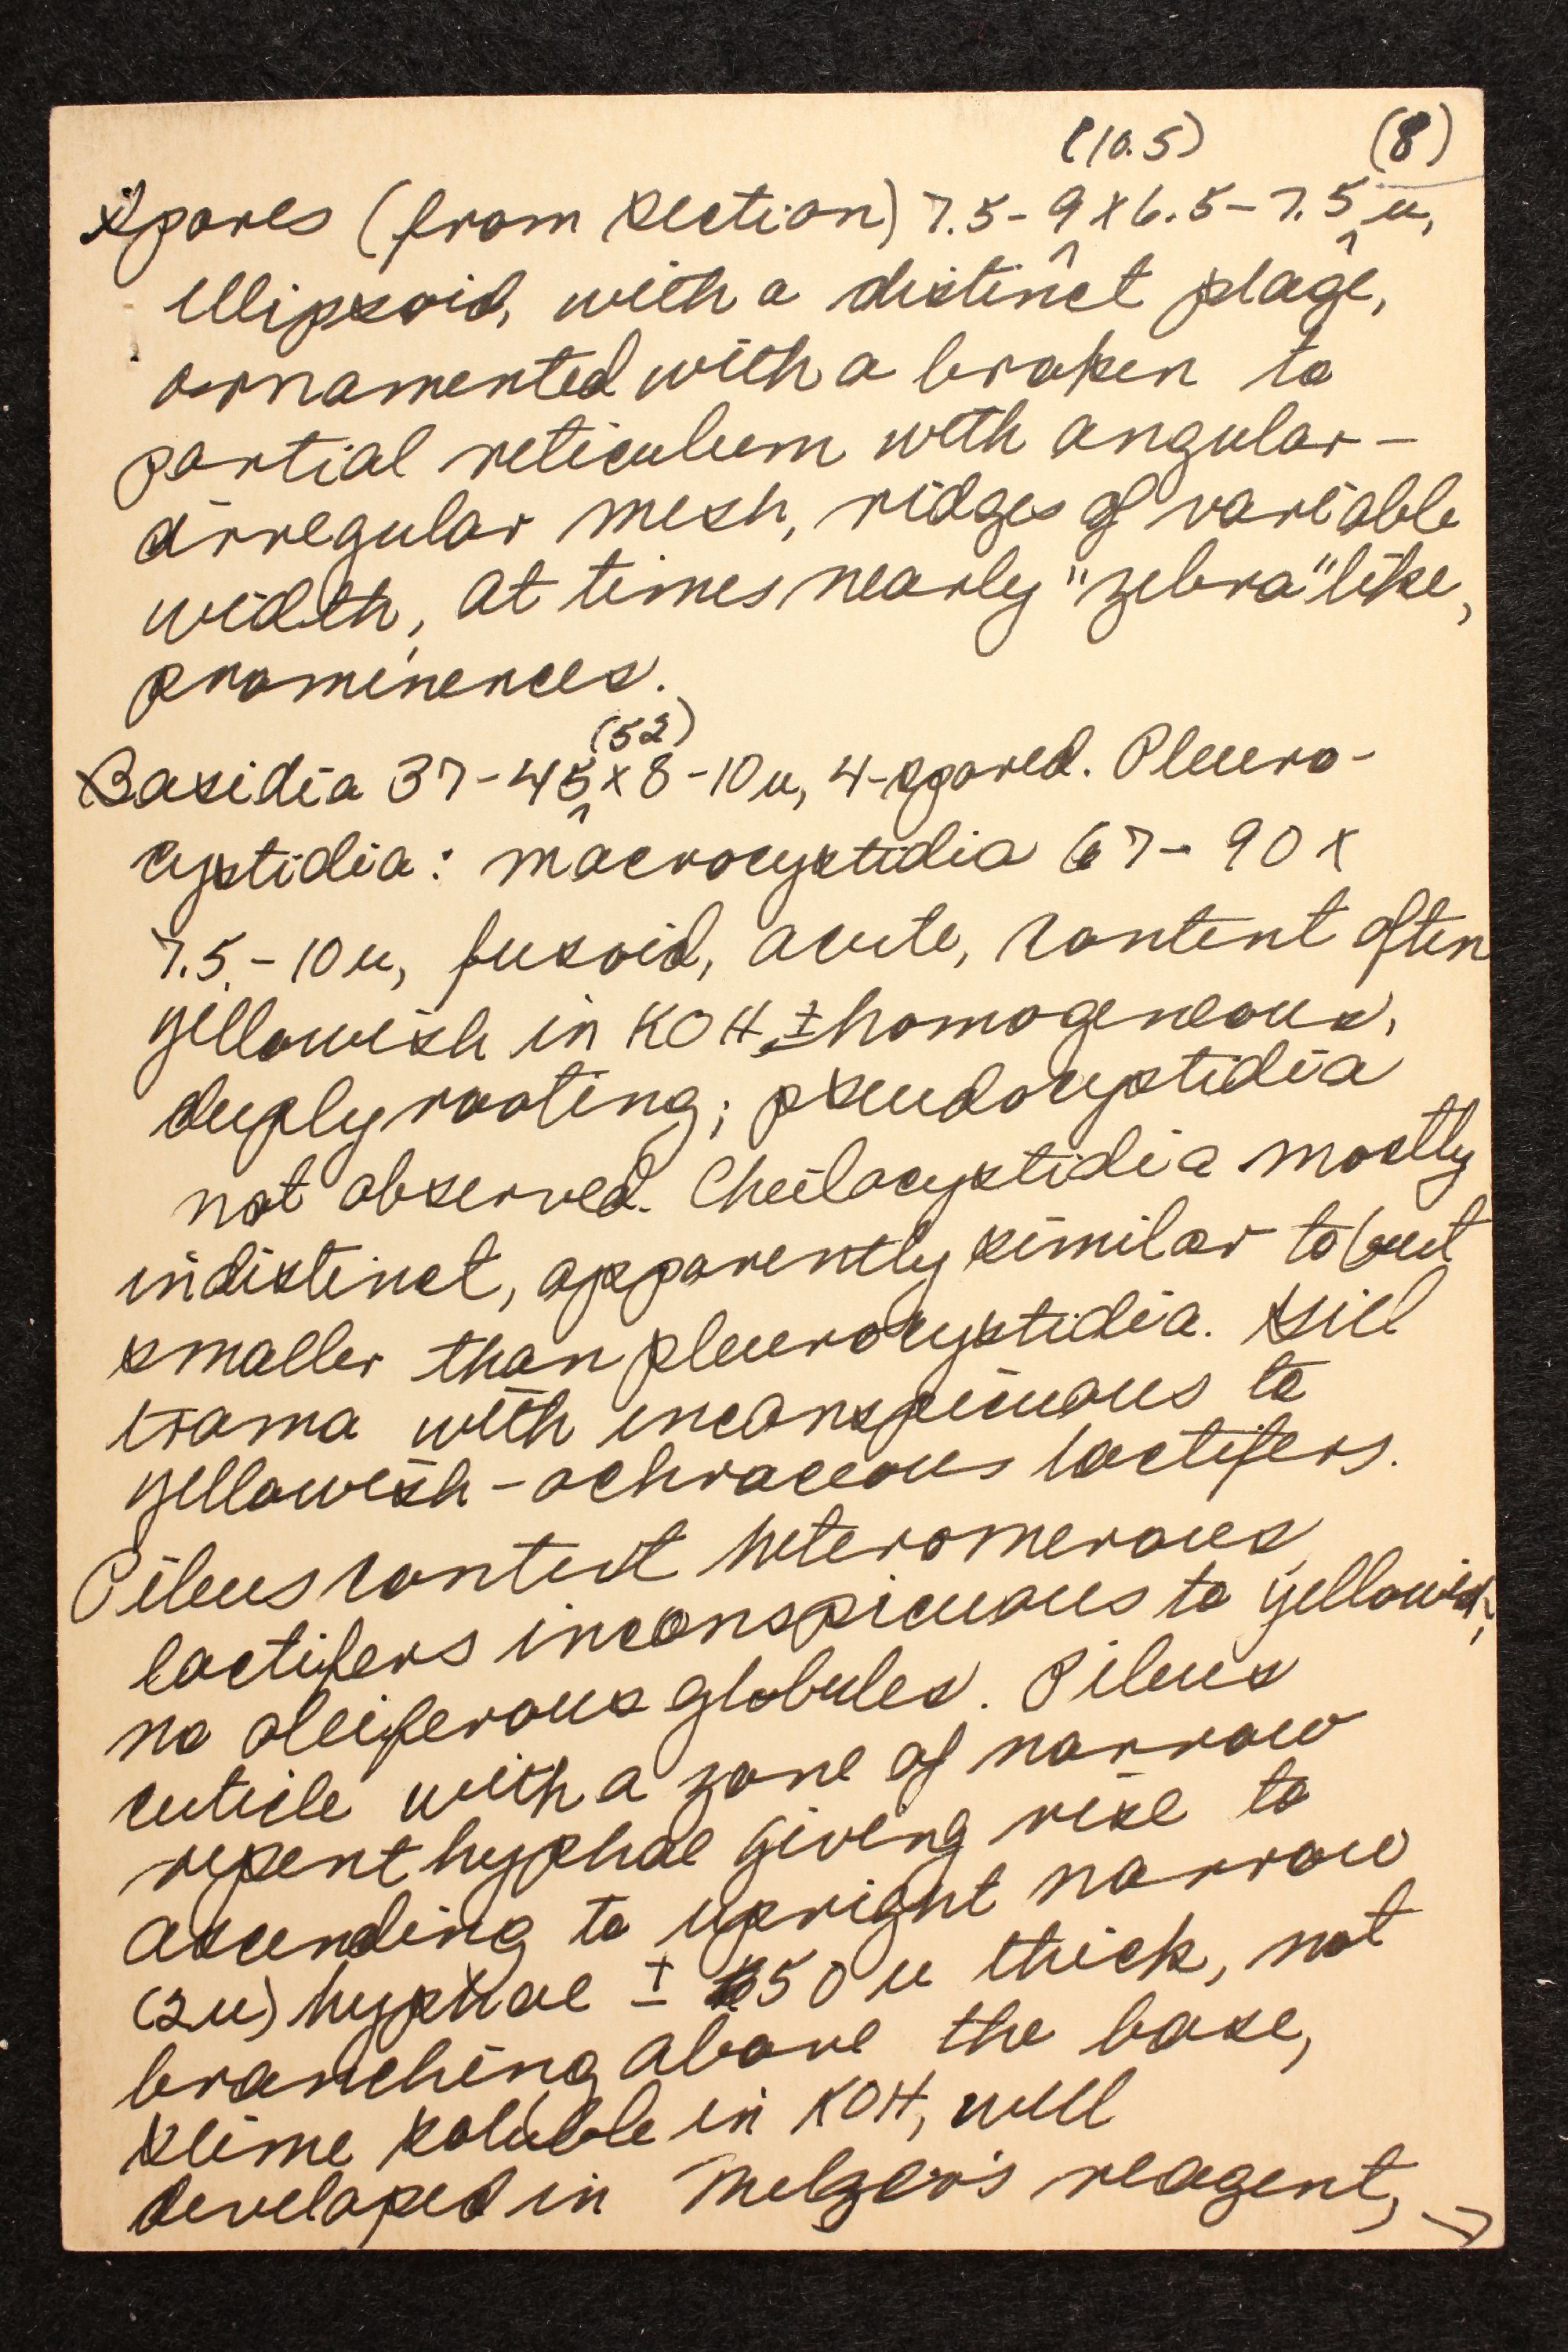 (10.5) (8)
Spores (from section) 7.5 - 9 x 6.5 - 7.5 u,
ellipsoid, with a distinct plage,
ornamented with a broken to
partial reticulum with angular-
irregular mesh, ridges of variable
width, at times nearly "zebra" like,
prominences.
(52)
Basidia 37 - 45 x 8 - 10 u, 4-spored. Pleuro-
cystidia: macrocystidia 67 - 90 x
7.5 - 10 u, fusoid, acute, content often
yellowish in KOH, ± homogeneous,
deeply rooting; pseudocystidia
not observed. Cheilocystidia mostly
indistinct, apparently similar to but
smaller than pleurocystidia. Gill
trama with inconspicuous to
yellowish-ochraceous lactifers.
Pileus context heteromerous,
lactifers inconspicuous to yellowish,
no oleiferous globules. Pileus
cuticle with a zone of narrow
repent hyphae giving rise to
ascending to upright narrow
(2u) hyphae ± 50 u thick, not
branching above the base,
slime soluble in KOH, well
developed in Melzer's reagent, →